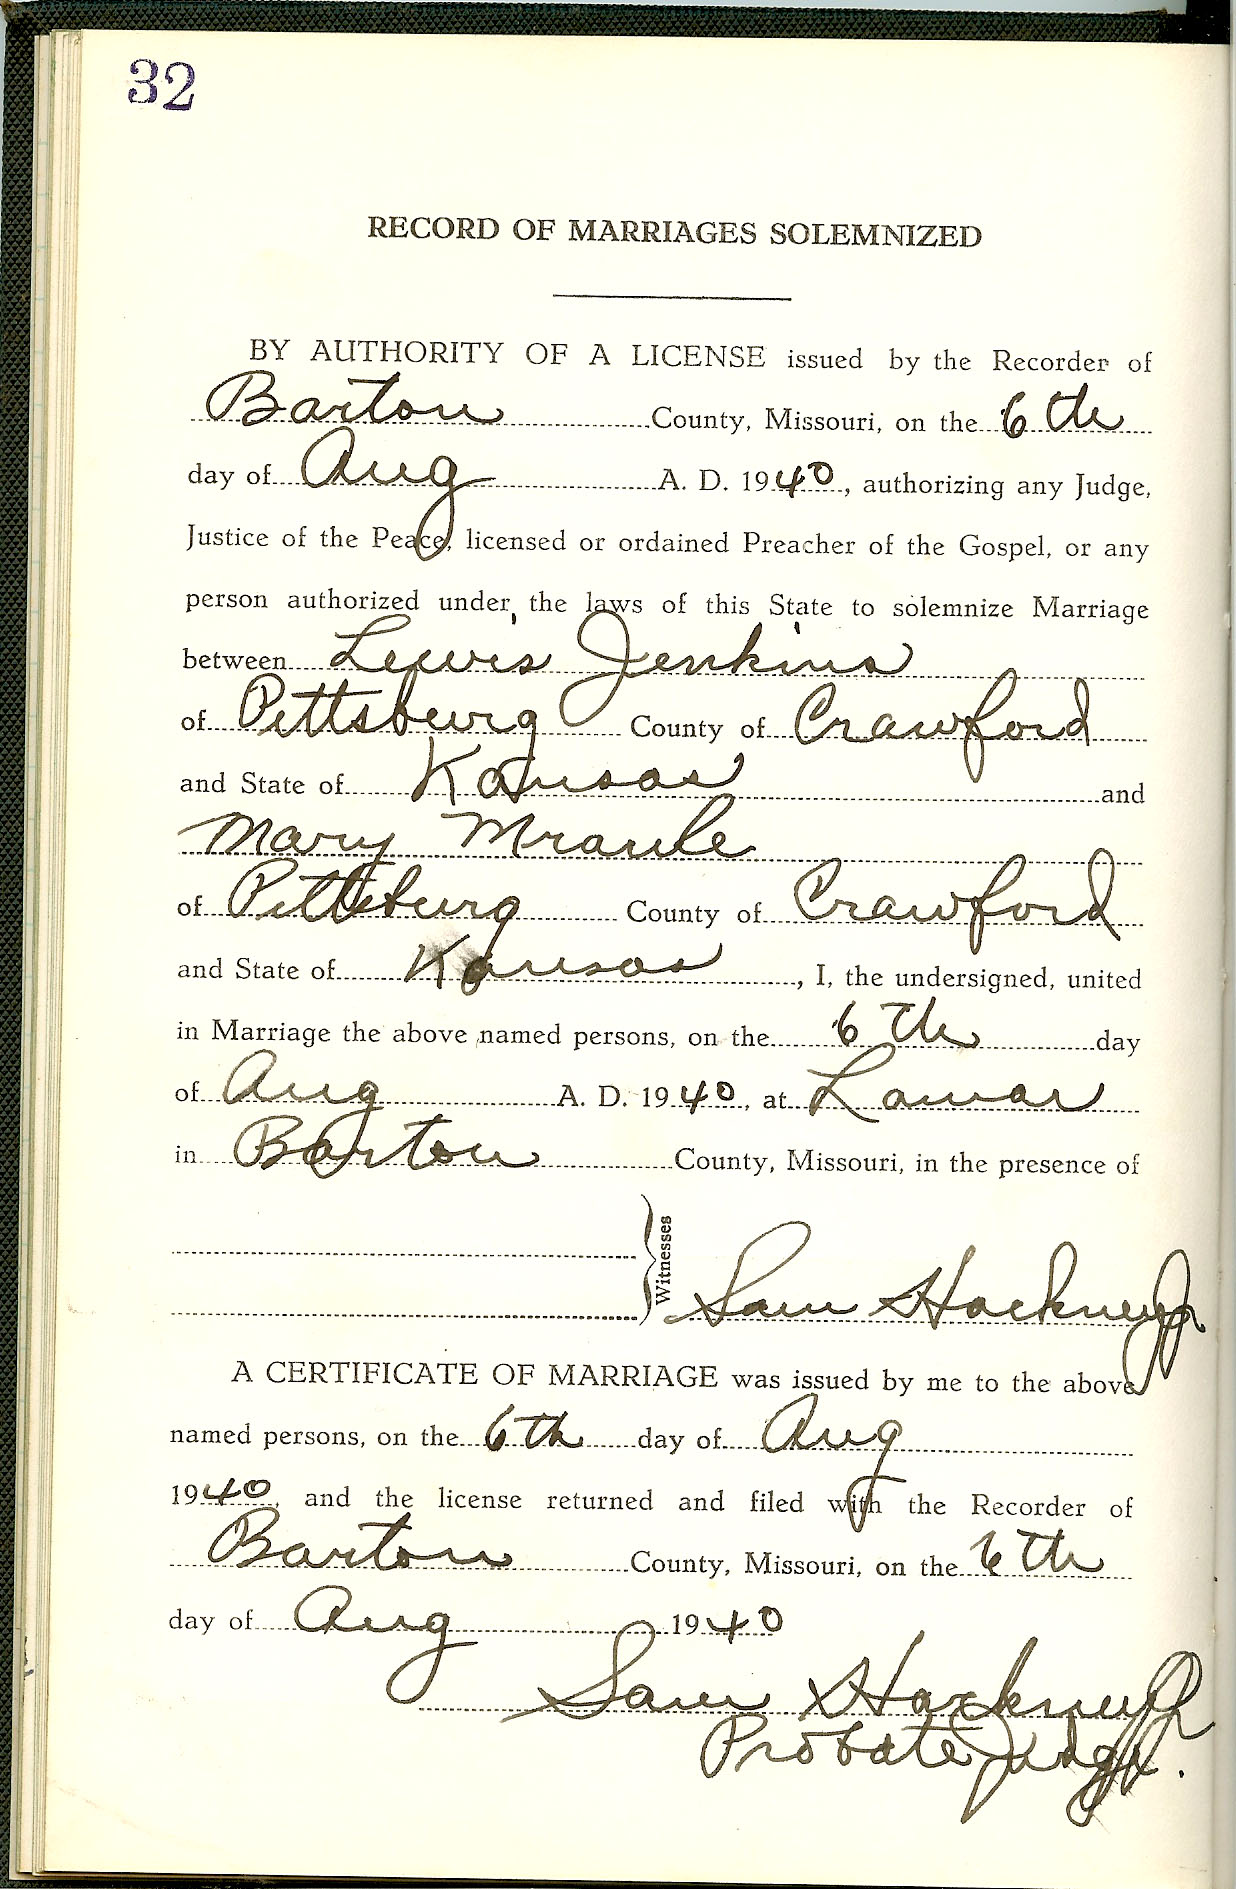 32
RECORD OF MARRIAGES SOLEMNIZED
BY AUTHORITY OF A LICENSE issued by the Recorder of
Barton County, Missouri, on the 6th
day of Aug A. D. 1940, authorizing any Judge,
Justice of the Peace, licensed or ordained Preacher of the Gospel, or any
person authorized under the laws of this State to solemnize Marriage
between Lewis Jenkins
of Pittsburg County of Crawford
and State of Kansas and
Mary
of Pittsburg County of Crawford
and State of Kansas, I, the undersigned, united
in Marriage the above named persons, on the 6th day
of Aug A. D. 1940, at Lamar
in Barton County, Missouri, in the presence of
Witnesses
Sam Hackney
A CERTIFICATE OF MARRIAGE was issued by me to the above
named persons, on the 6th day of Aug
1940, and the license returned and filed with the Recorder of
Barton County, Missouri, on the 6th
day of Aug 1940
Sam Hackney
Probate Judge.